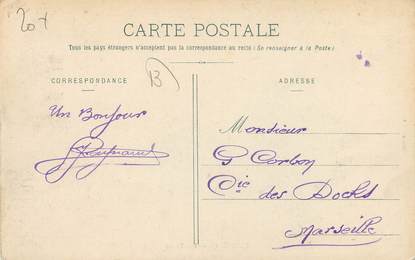 20+
CARTE POSTALE
Tous les pays étrangers n'acceptent pas la correspondance au recto (Se renseigner à la Poste)
CORRESPONDANCE
B
ADRESSE
Un Bonjour
Monsieur
G Corbon
Cie des Docks
Marseille